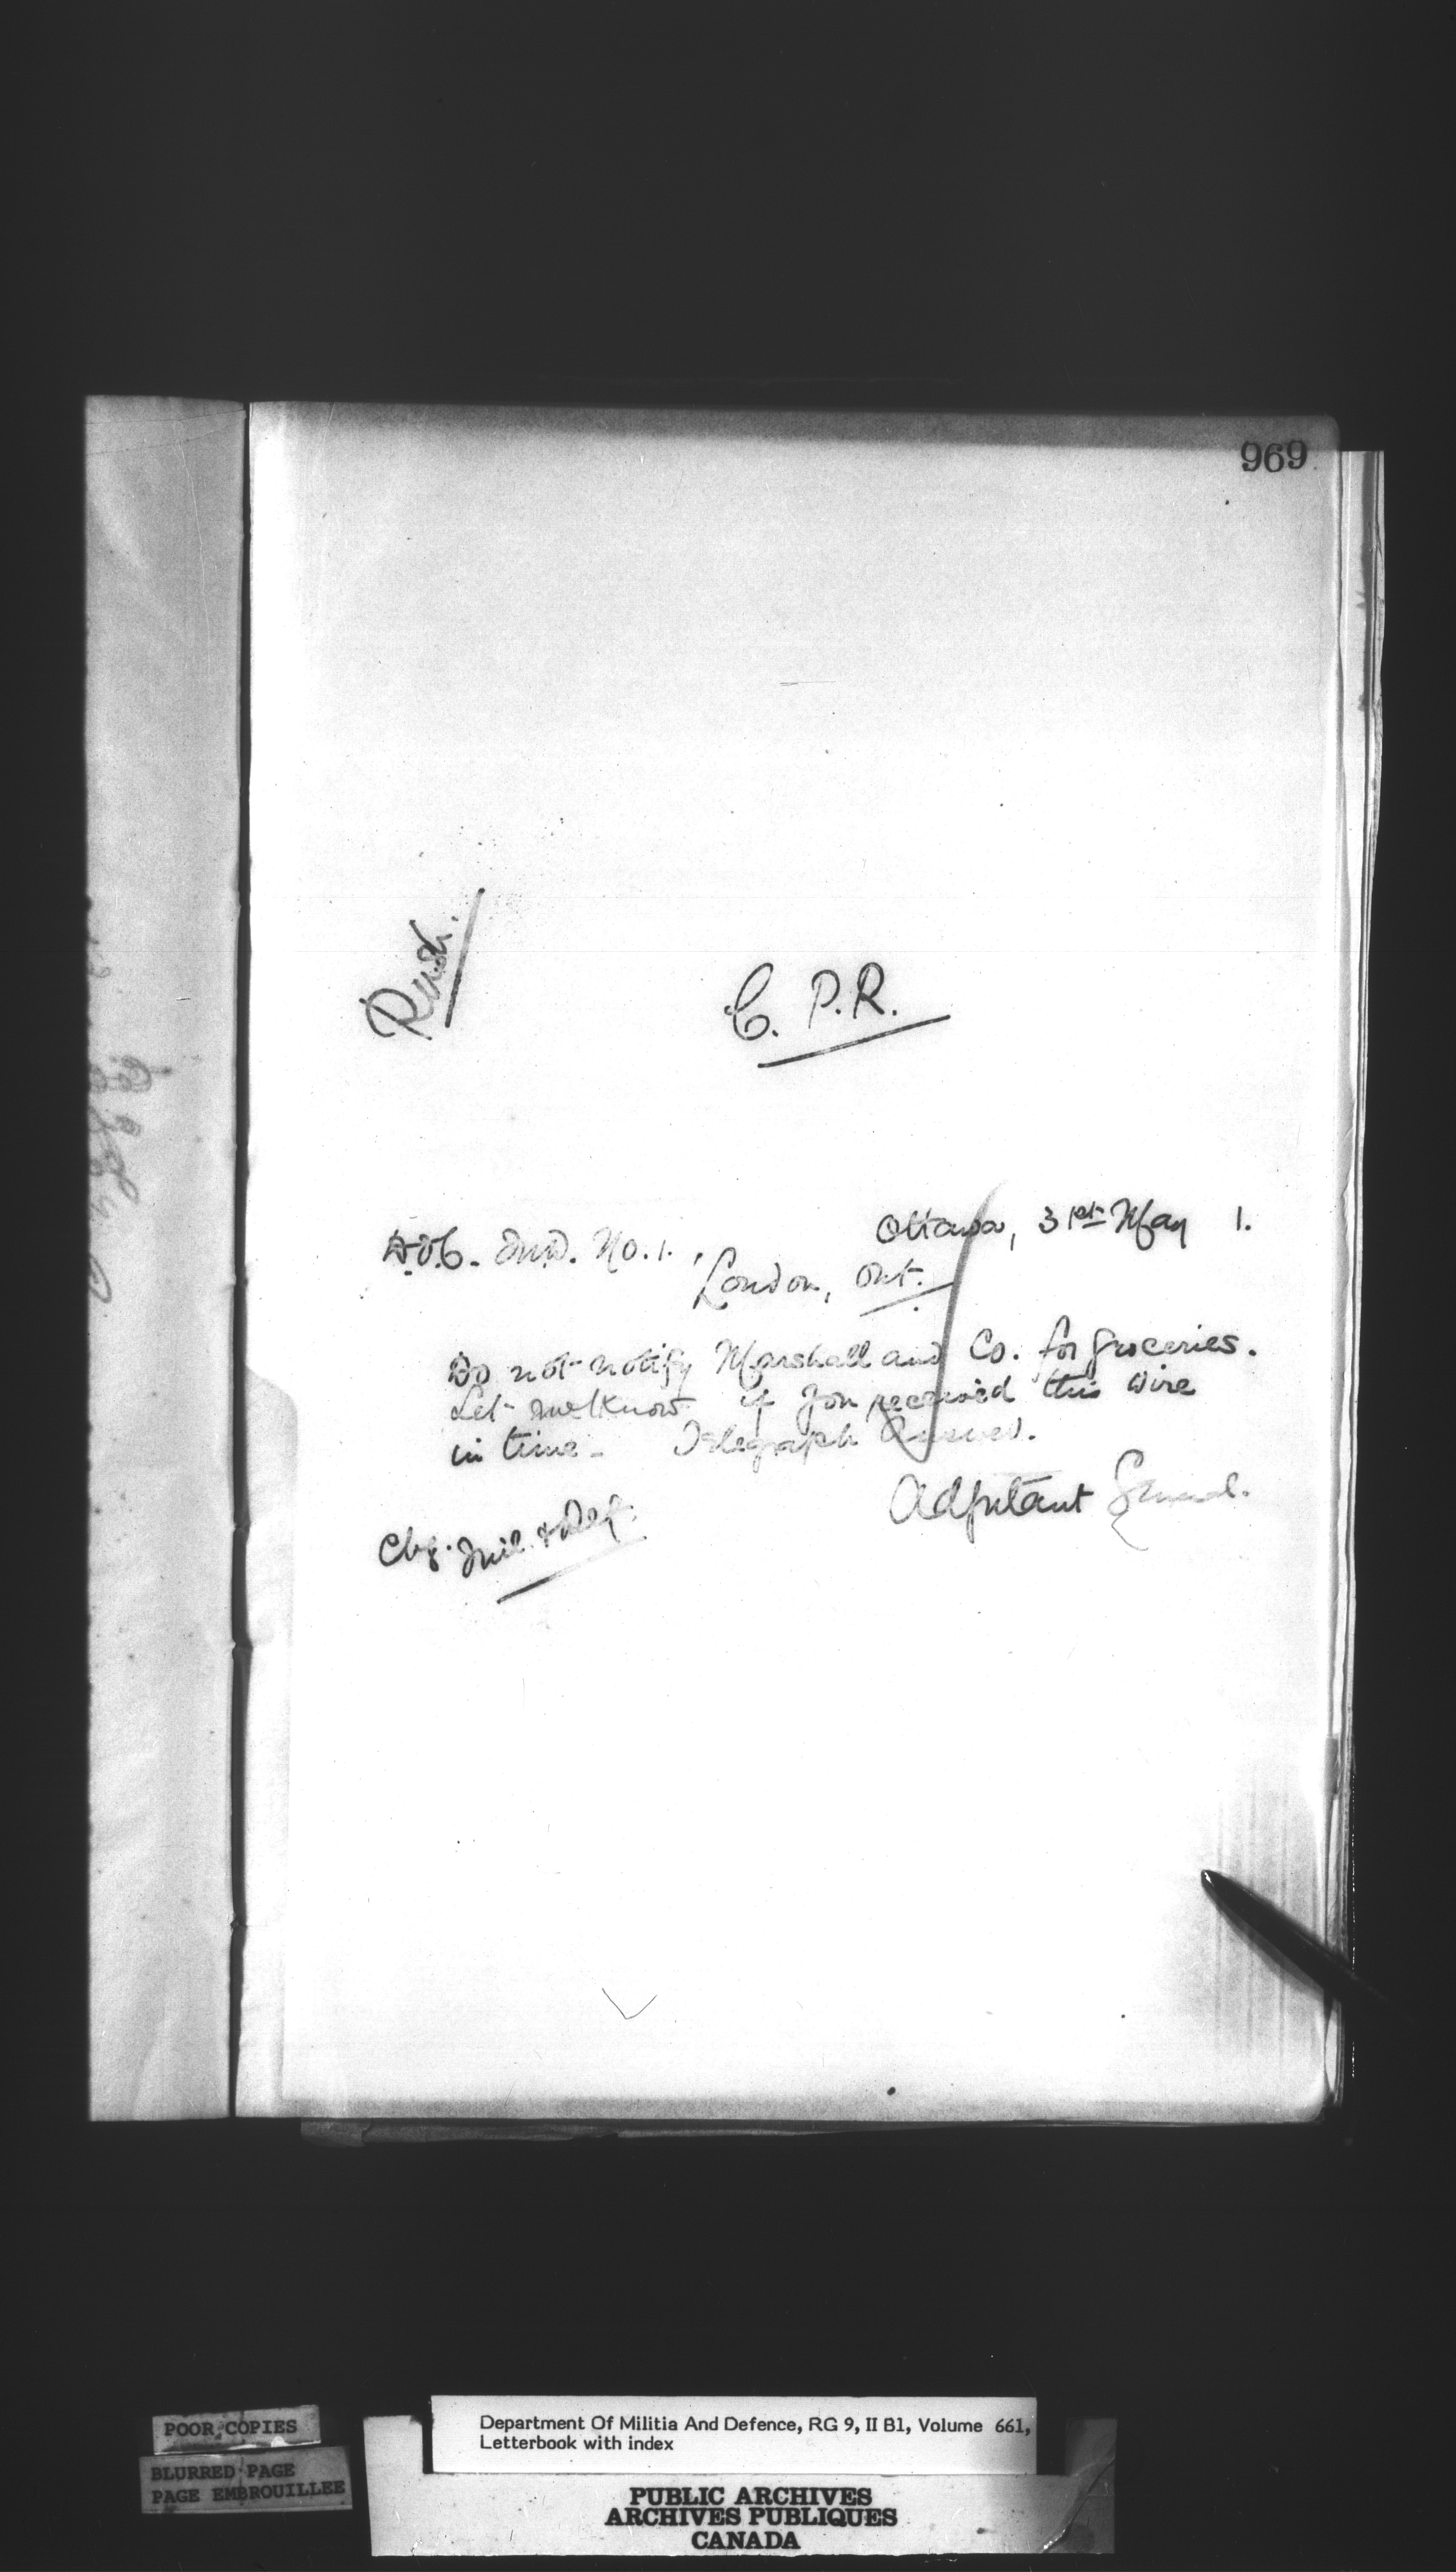 969
Rush.
C. P. R.
Ottawa, 31st May 1.
D.O.C. M.D. No. 1.,
London, Ont.
Do not notify Marshall and Co. for groceries.
Let me know if you received this wire
in time - Telegraph Answer.
Adjutant General.
Chg. Mil. & Def.
POOR COPIES
BLURRED PAGE
PAGE EMBROUILLEE
Department Of Militia And Defence, RG 9, II B1, Volume 661,
Letterbook with index
PUBLIC ARCHIVES
ARCHIVES PUBLIQUES
CANADA